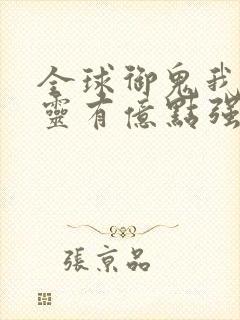 全球御鬼我
靈有億點强
張京品